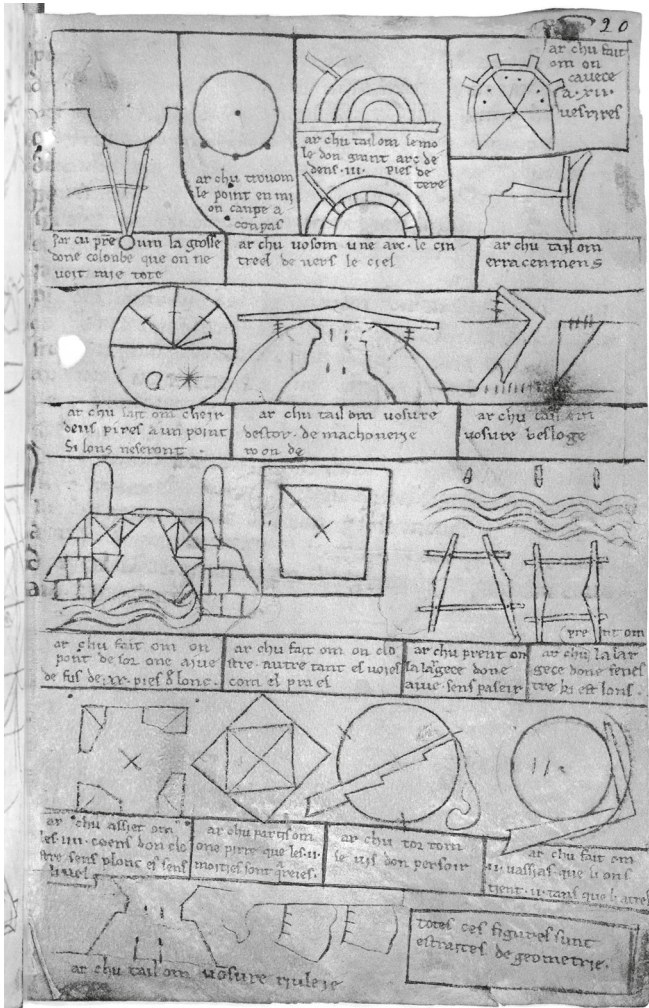 20
ar chu fait
om on
cavece
a .xii.
vesrires
ar chu tail om le mo
le don grant arc de
dens .iii. pies de
tere
ar chu trovom
le point en mi
on canpe a
conpas
Par cu prent om la grosse
done colonbe que on ne
voit mie tote
ar chu vosom une arc. le cin
treel de vers le ciel
ar chu tail om
erracenmens
ar chu fait om cheir
deus pires a un point
Si lons ne seront .
ar chu tail om vosure
destor. de machonerie
roonde
ar chu tail om
vosure besloge
ar chu fait om on
pont de sor one aive
de fus de .xx. pies d lonc.
ar chu fait om on clo
stre. autre tant es voies
com el prael
ar chu prent om
la largece done
aive. sens paseir
prent om
ar chu la lar
gece done fenes
tre ki est lons.
ar chu assiet om
les .iiii. coens don clo
stre sens plonc et sens
livel
ar chu partist om
one pirre que les .ii.
moities sont qreies.
ar chu tor torn
le vis don persoir
ar chu fait om
.ii. vassias que li ons
tient .ii. tans que li atres
ar chu tail om vosure riuleie
totes ces figures sunt
estraites de geometrie.